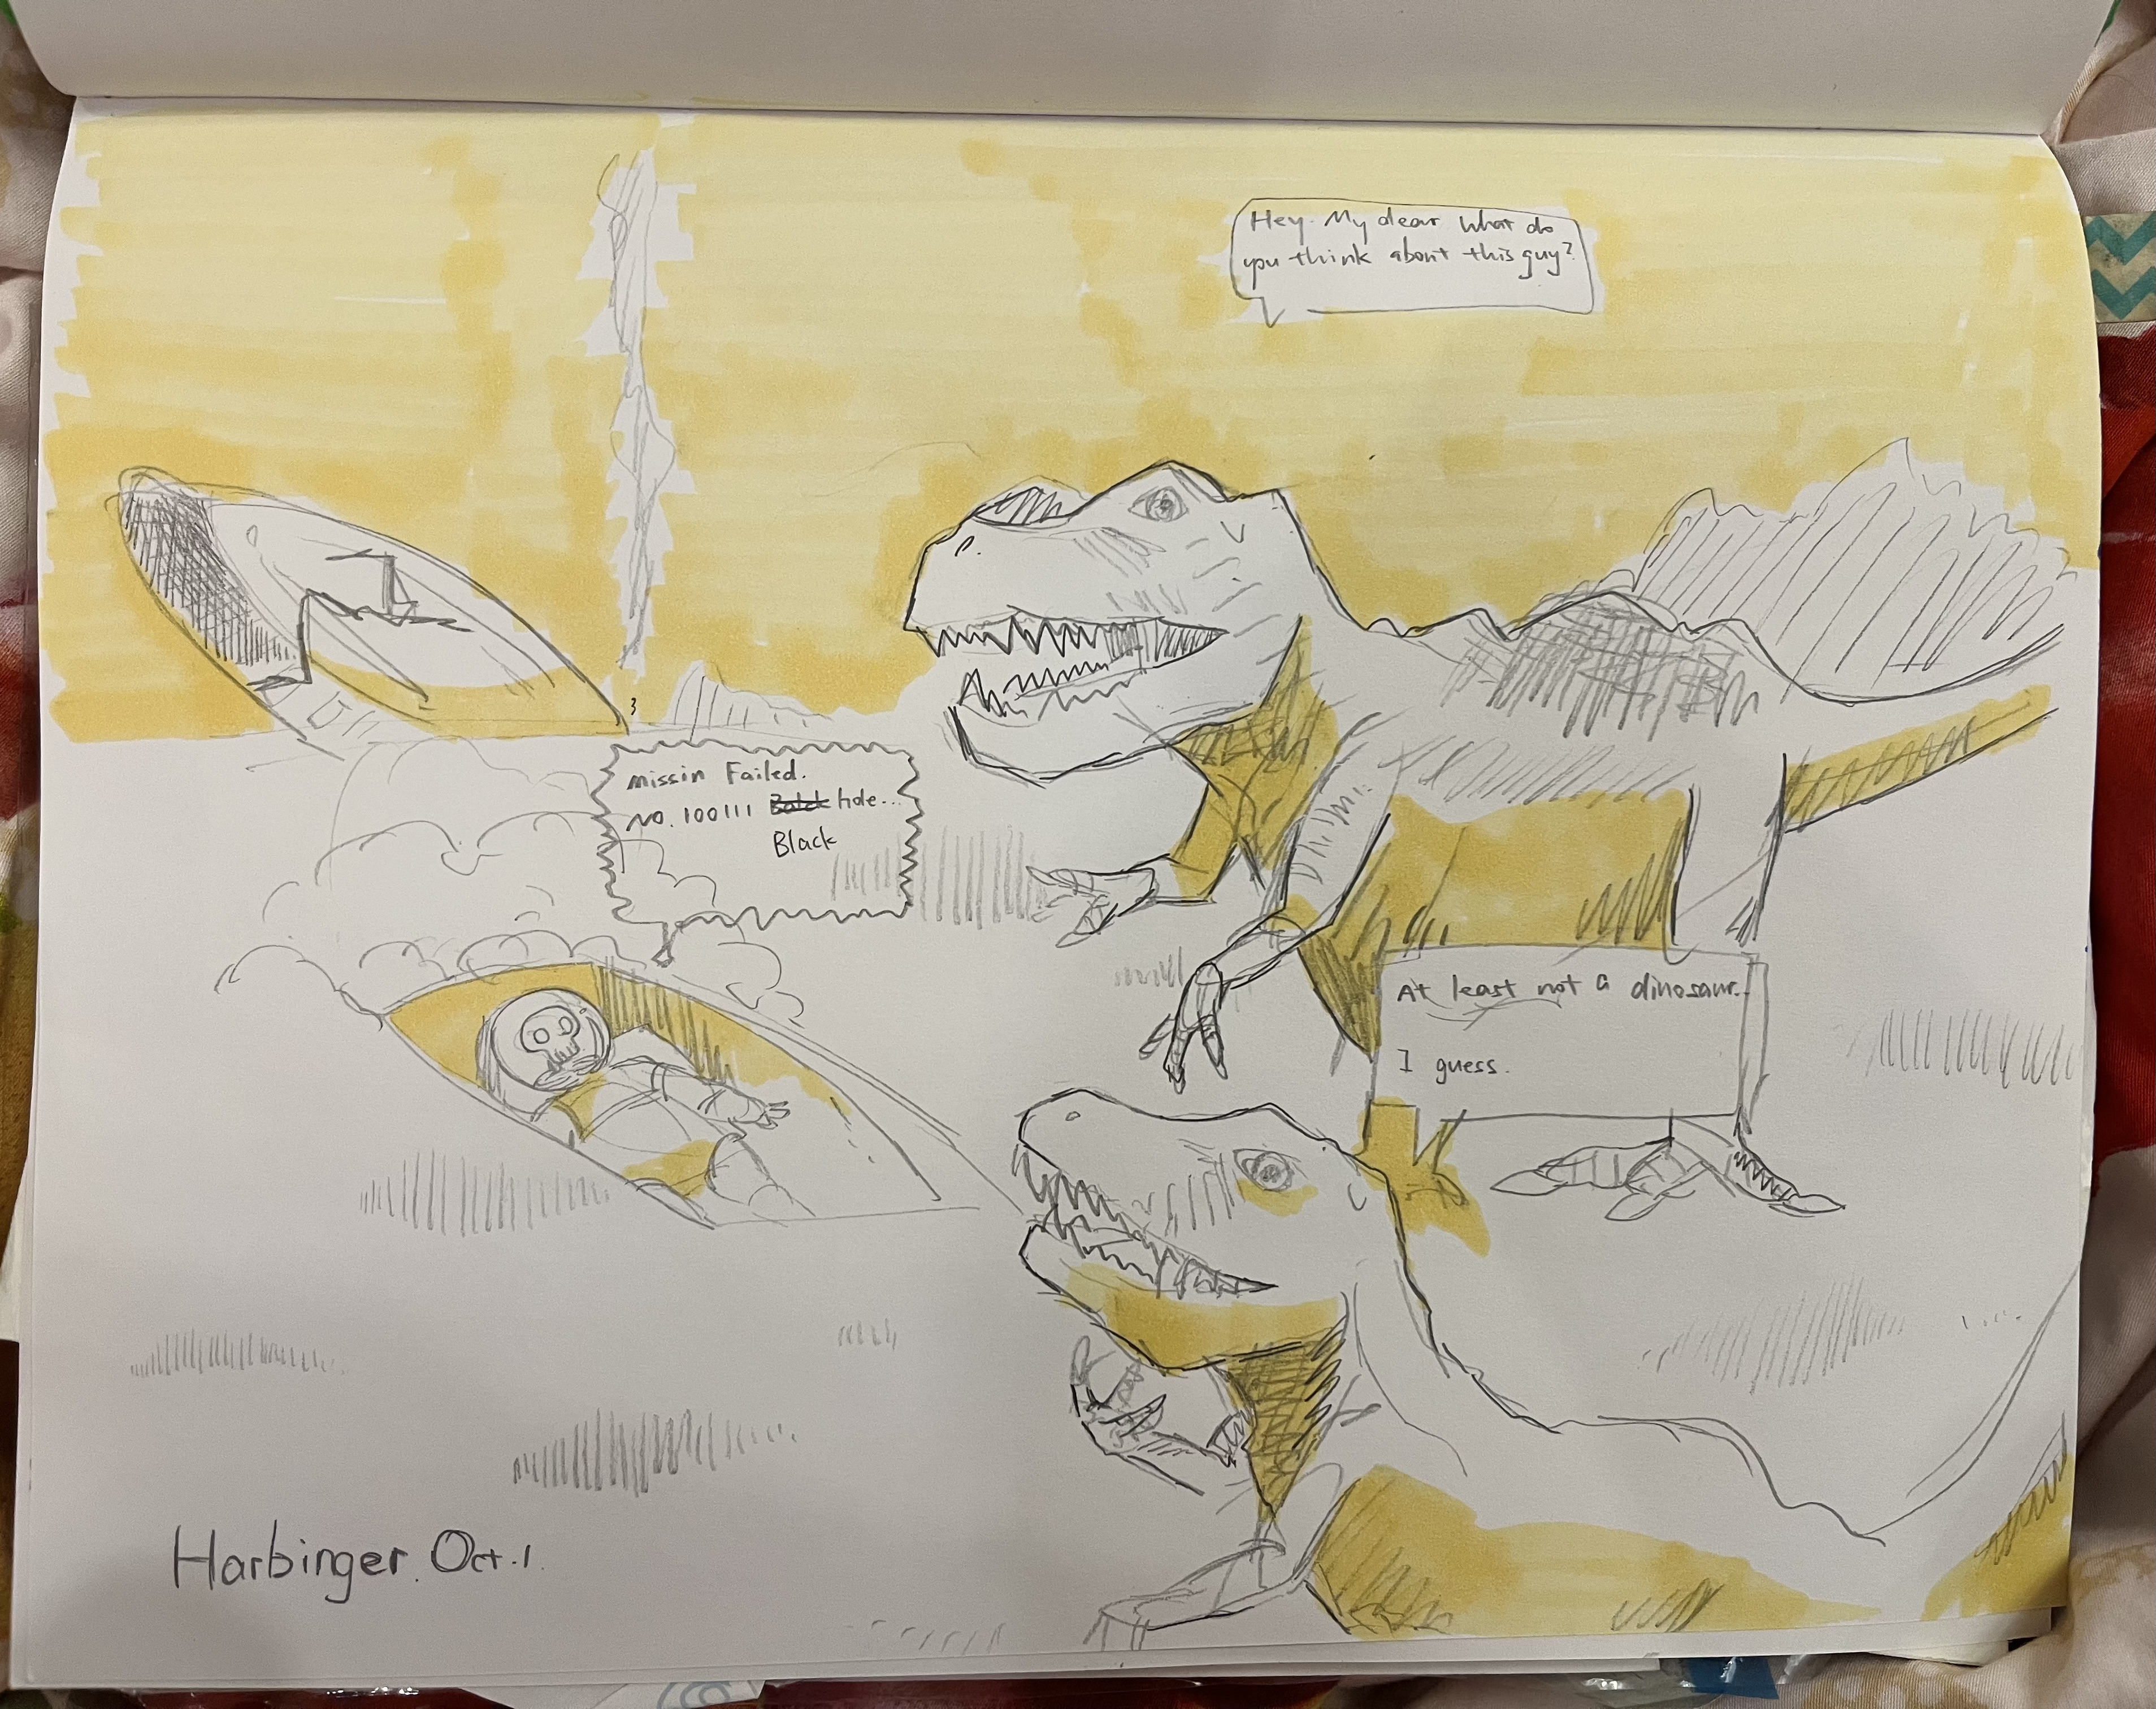 Hey. My dear what do
you think about this guy?
missin Failed.
NO. 100111 hole...
Black
At least not a dinosaur..
I guess.
Harbinger. Oct.1.